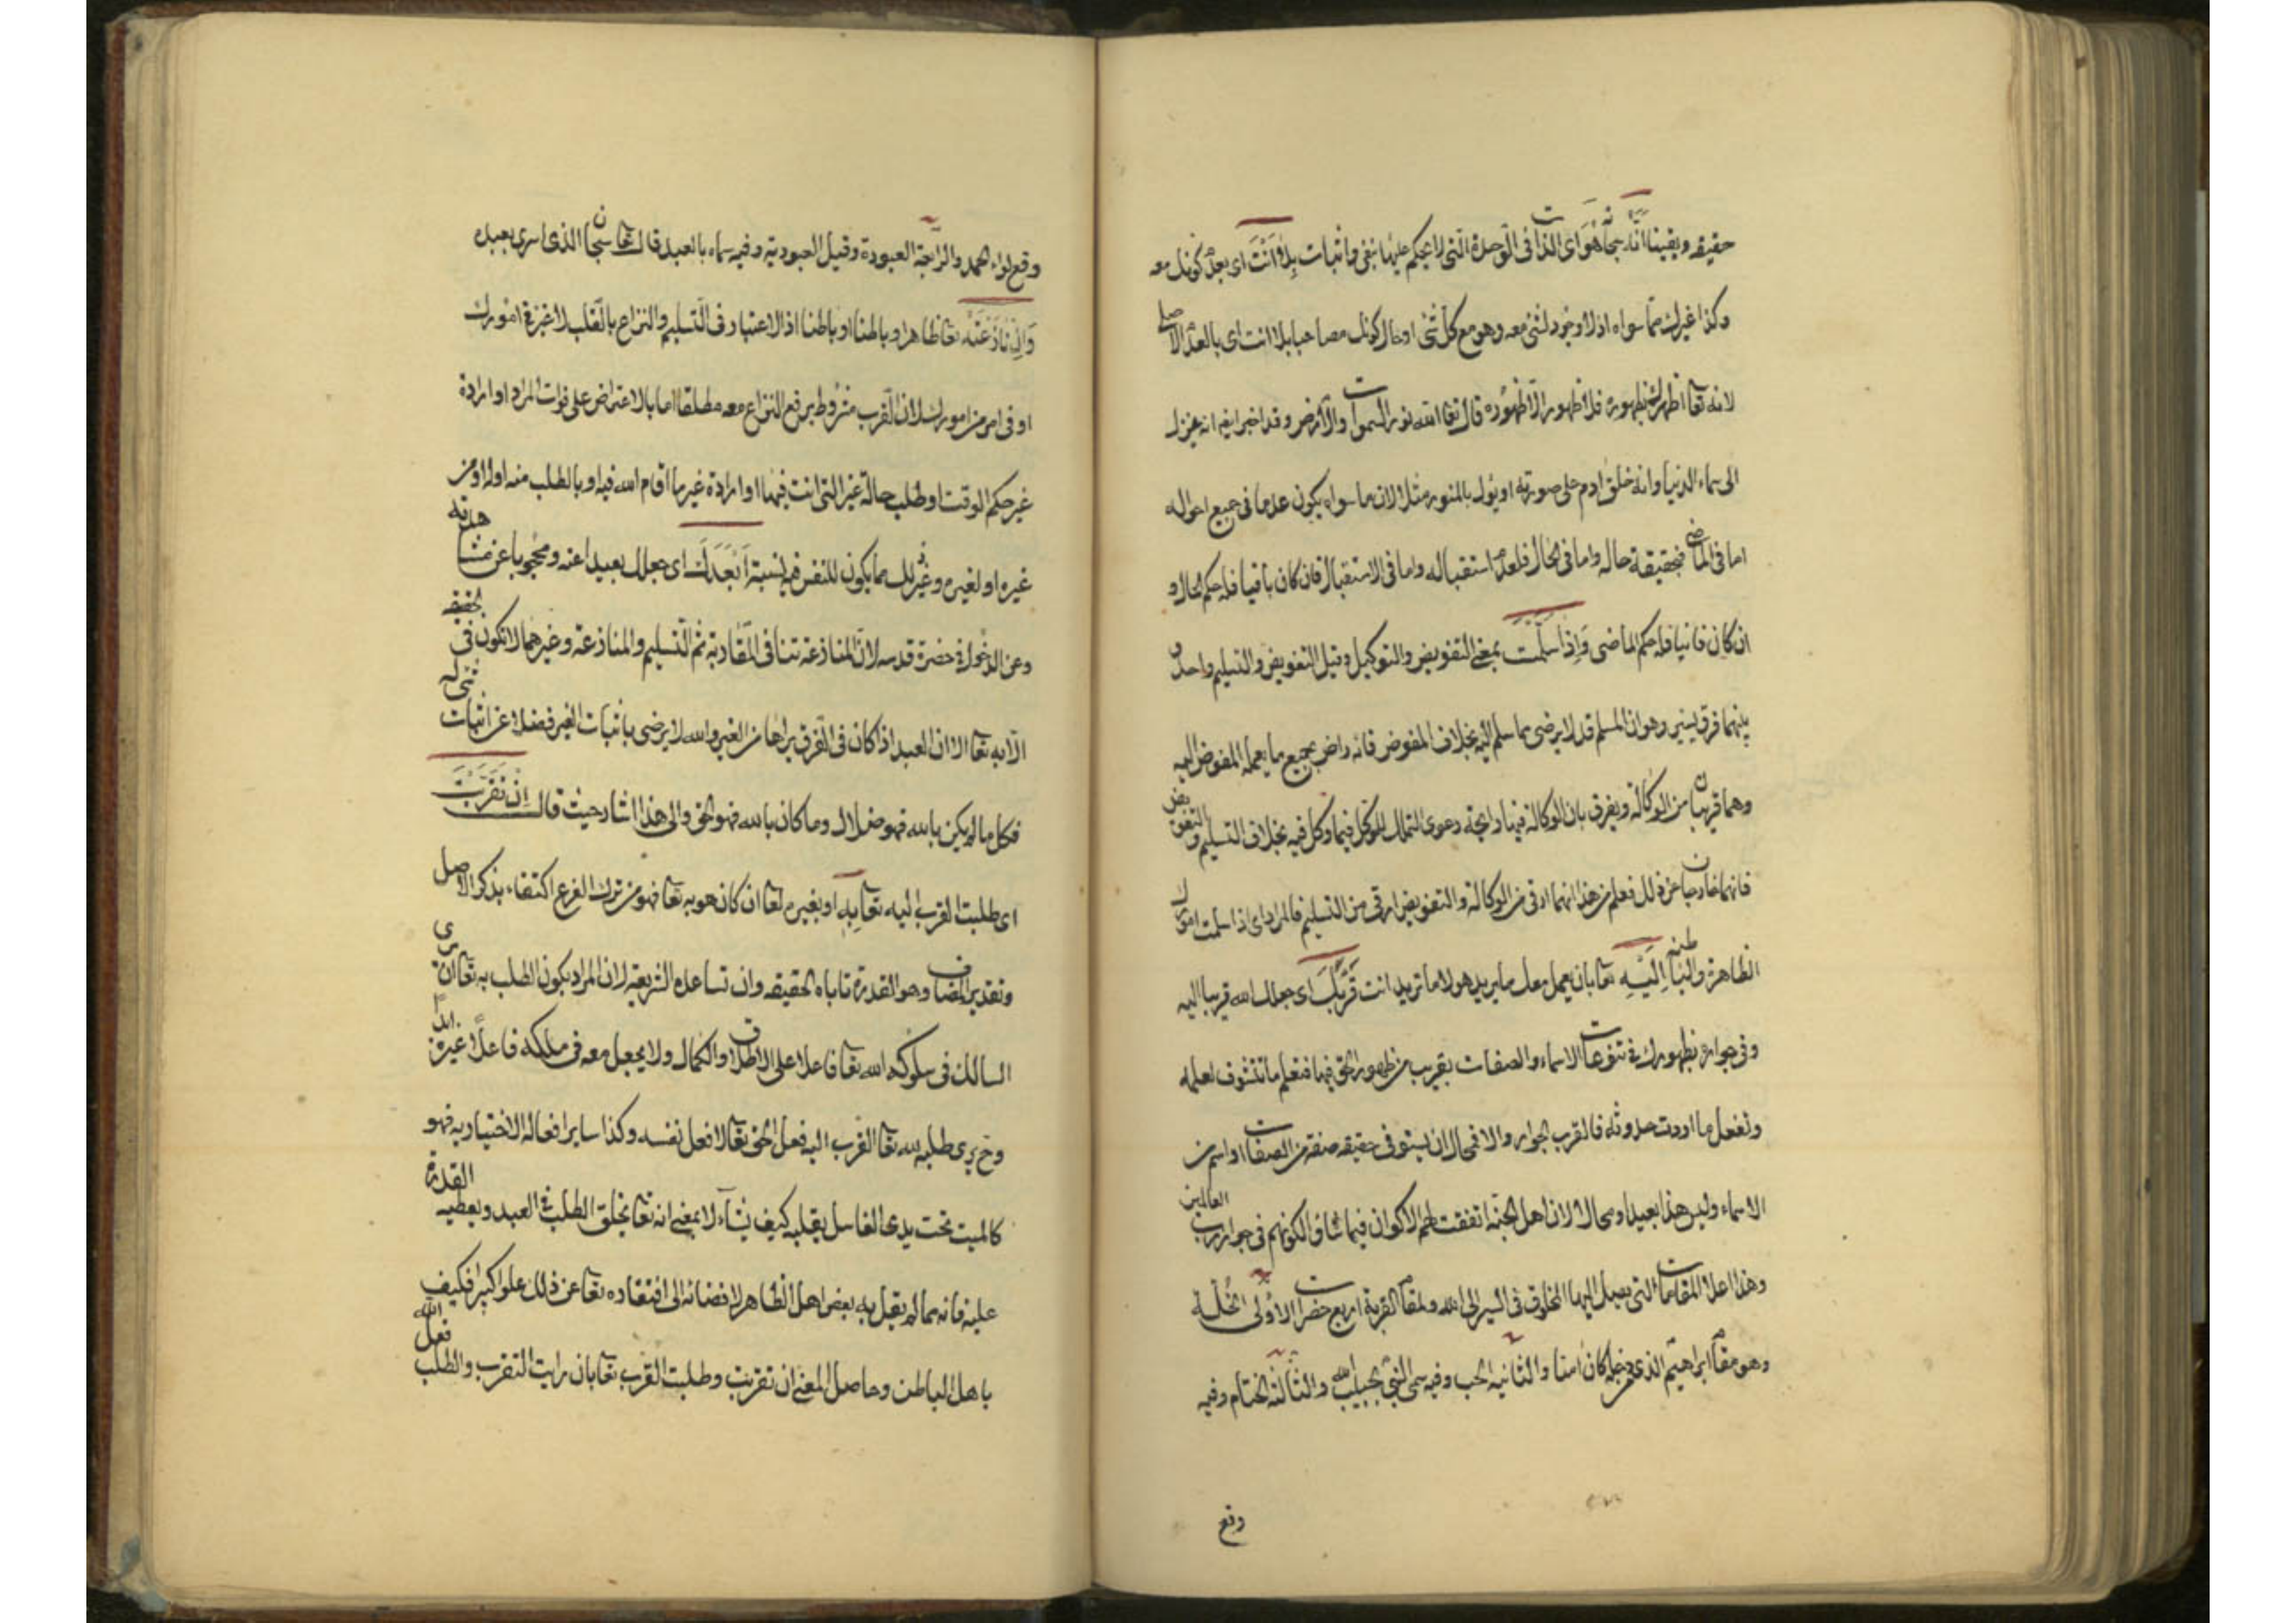 حقيقة ويقينا انه سبحانه هو اى الذات فى الوحدة التى لا يحكم عليها بنفى واثبات بلا انت اى بعدم كونك معه
وكذا غيرك مما سواه اذ لا وجود لشئ معه وهو مع كل شئ او حال كونك مصاحبا بلا انت اى بالعدم الاصلى
لانه تعا اظهرك بظهوره فلا ظهور الا ظهوره قال تعا الله نور السموات والارض وقد اخبر ايضا انه ينزل
الى سماء الدنيا وانه خلق ادم على صورته او يؤل بالمنور مثلا لان ما سواه يكون عدما فى جميع احواله
اما فى الماضى فحقيقة حاله واما فى الحال فلعدم استقباله واما فى الاستقبال فان كان باقيا فله حكم الحال و
ان كان فانيا فله حكم الماضى وَاِذَا سَلَّمْتَ بمعنى التفويض والتوكيل وقيل التفويض والتسليم واحد و
بينهما فرق يسير وهو ان المسلم قد لا يرضى بما سلم اليه بخلاف المفوض فانه راض بجميع ما يعمله المفوض اليه
وهما قريبان من الوكالة ويفرق بان الوكالة فيها رايحة دعوى التملك للموكل فيما وكل فيه بخلاف التسليم والتفويض
فانهما خارجان عن ذلك فعلم من هذا انهما ارقى من الوكالة والتفويض ارقى من التسليم فالمراد اى اذا سلمت امورك
الظاهرة والباطنه اِلَيْهِ تعا بان يعمل معك ما يريد هو لا ما تريد انت قَرَّبَكَ اى جعلك الله قريبا اليه
وفى جواره بظهورك فى تنوعات الاسماء والصفات بقريب من ظهور الحق فيها فتعلم ما تتشوف لعلمه
وتفعل ما اردت حدوثه فالقرب الجوار والا فمحال ان يستوفى حقيقه صفة من الصفات او اسم من
الاسماء وليس هذا بعيدا ومحالا لان اهل الجنة اتفقت لهم الاكوان فيما شاؤا لكونهم فى جوار رب العالمين
وهذا اعلا المقامات التى يصل اليها المخلوق فى السير الى الله ولمقام القربة اربع حضرات الاولى الخلة
وهو مقام ابراهيم الذى من دخله كان امنا والثانيه الحب وفيه سمى النبى بحبيب الله والثالثة الختام وفيه
وقع
وقع لواء الحمد والرابعة العبودة وقيل العبودية وفيه سماه بالعبد قال تعا سبحان الذى اسرى بعبده
وَاِنْ نَازَعْتَهُ تعا ظاهرا وباطنا او باطنا اذ الاعتبار فى التسليم والنزاع بالقلب لا غير فى امورك
او فى امر من امورك لان القرب مشروط برفع النزاع معه مطلقا اما بالاعتراض على فوات المراد او ارادة
غير حكم الوقت او طلب حالة غير التى انت فيها او ارادة غير ما اقام الله فيه او بالطلب منه او له او من
غيره او لغيره وغير ذلك مما يكون للنفس فيه نسبة اَبْعَدَكَ اى جعلك بعيدا عنه ومحجوبا عن مشاهدته
وعن الدخول فى حضرة قدسه لان المنازعة تنافى المقاربة ثم التسليم والمنازعة وغيرهما لا تكون فى الحقيقة
الا به تعا الا ان العبد اذا كان فى الفرق يراها من الغير والله لا يرضى باثبات الغير فضلا عن اثبات شئ له
فكل ما لم يكن بالله فهو ضلال وما كان بالله فهو الحق والى هذا اشار حيث قال اِنْ تَقَرَّبْتَ
اى طلبت القرب اليه تعا بِهِ او بغيره لعا ان كان هو به تعا فهو من ترك الفرع اكتفاء بذكر الاصل
وتقدير المضاف وهو القدرة تاباه الحقيقه وان تساعده الشريعة لان المراد يكون الطلب به تعا ان يرى
السالك فى سلوكه الله تعا فاعلا على الاطلاق والكمال ولا يجعل معه فى ملكه فاعلا غيره ابدا
وح يرى طلبه لله تعا القرب اليه فعل الحق تعا لا فعل نفسه وكذا ساير افعاله الاختياريه فهو
كالميت تحت يدى الغاسل يقلبه كيف يشآء لا بمعنى انه تعا يخلق الطلب فى العبد ويعطيه القدرة
عليه فانه مما لم يقل به بعض اهل الظاهر لافضائه الى افتقاده تعا عن ذلك علوا كبيرا فكيف
باهل الباطن وحاصل المعنى ان تقربت وطلبت القرب تعا بان رايت التقرب والطلب فعل الله